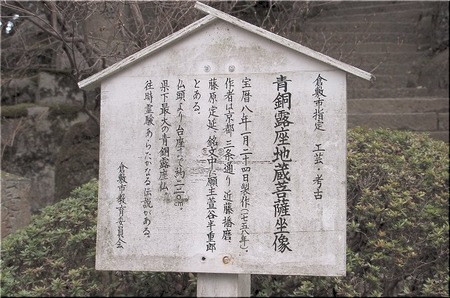 倉敷市指定 工芸・考古
青銅露座地蔵菩薩坐像
宝暦八年一月二十四日製作(一七五八年)、
作者は京都 三条通り 近藤播磨、
藤原定延、銘文中に願主萱谷半重郎
とある。
仏頭より台座まで約二二〇㎝
県下最大の青銅露座仏、
往時霊験あらたかなる伝説がある。
倉敷市教育委員会